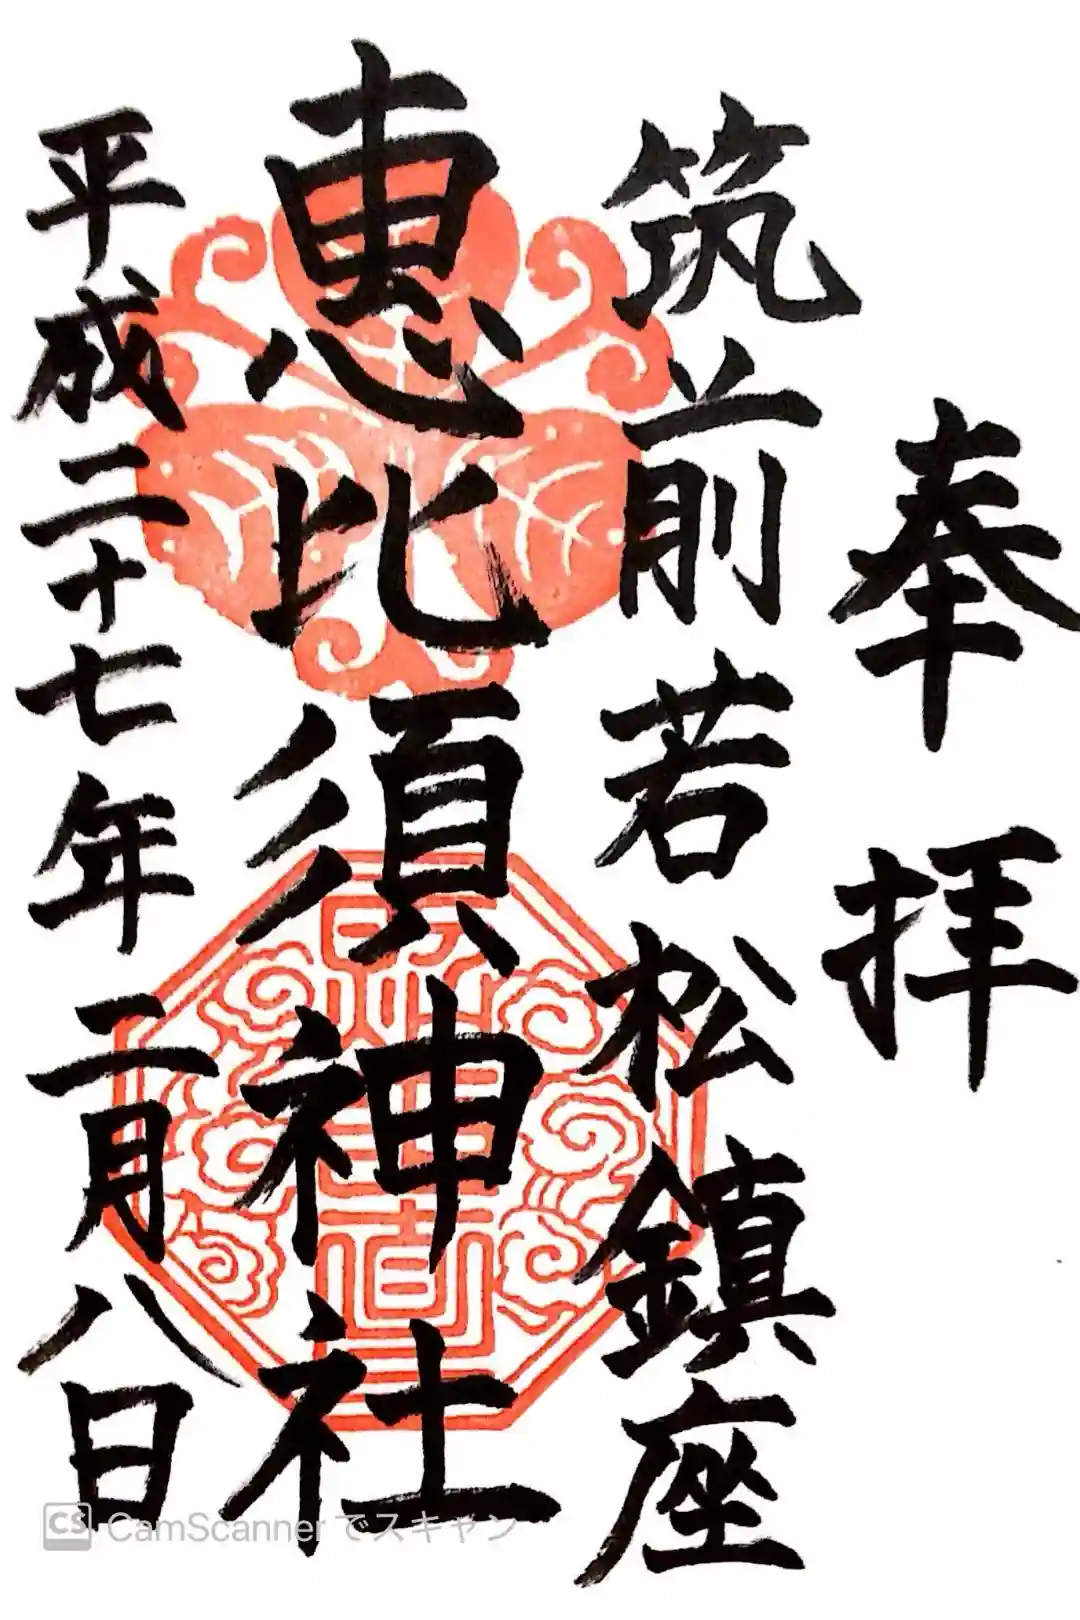 奉拝
筑前若松鎮座
恵比須神社
平成二十七年二月八日
CS CamScannerでスキャン